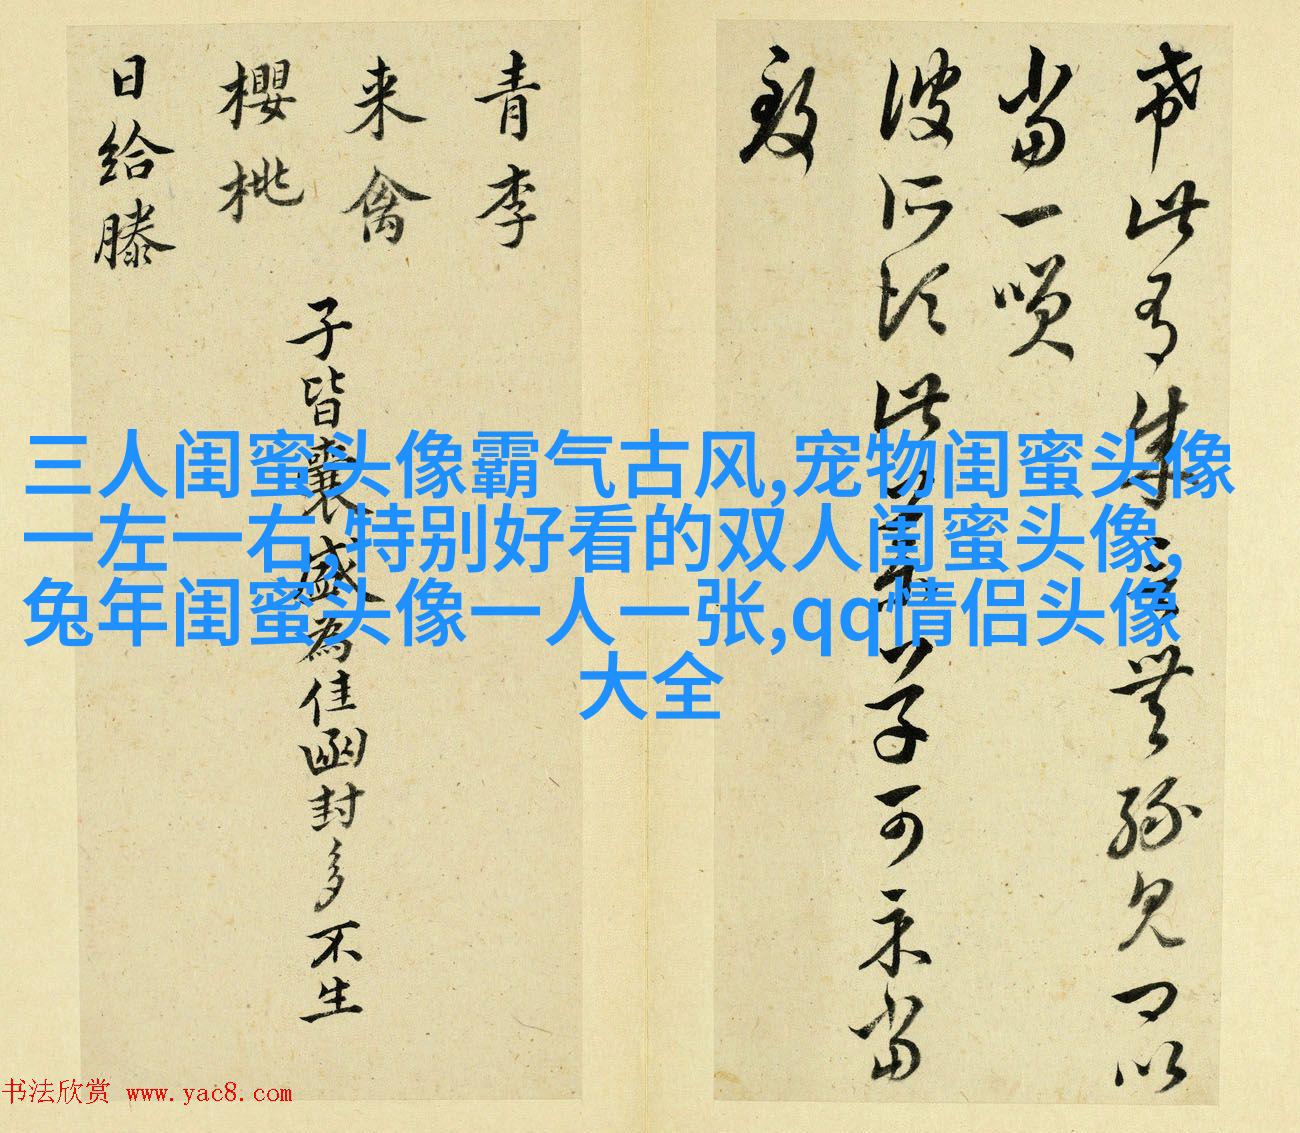 三人闺蜜头像霸气古风,宠物闺蜜头像
一左一右,特别好看的双人闺蜜头像,
兔年闺蜜头像一人一张,qq情侣头像
大全
当一
彼所须此药草可示当
致
青李
来禽
櫻桃
日给滕
子皆囊盛為佳函封多不生
书法欣赏 www.yac8.com